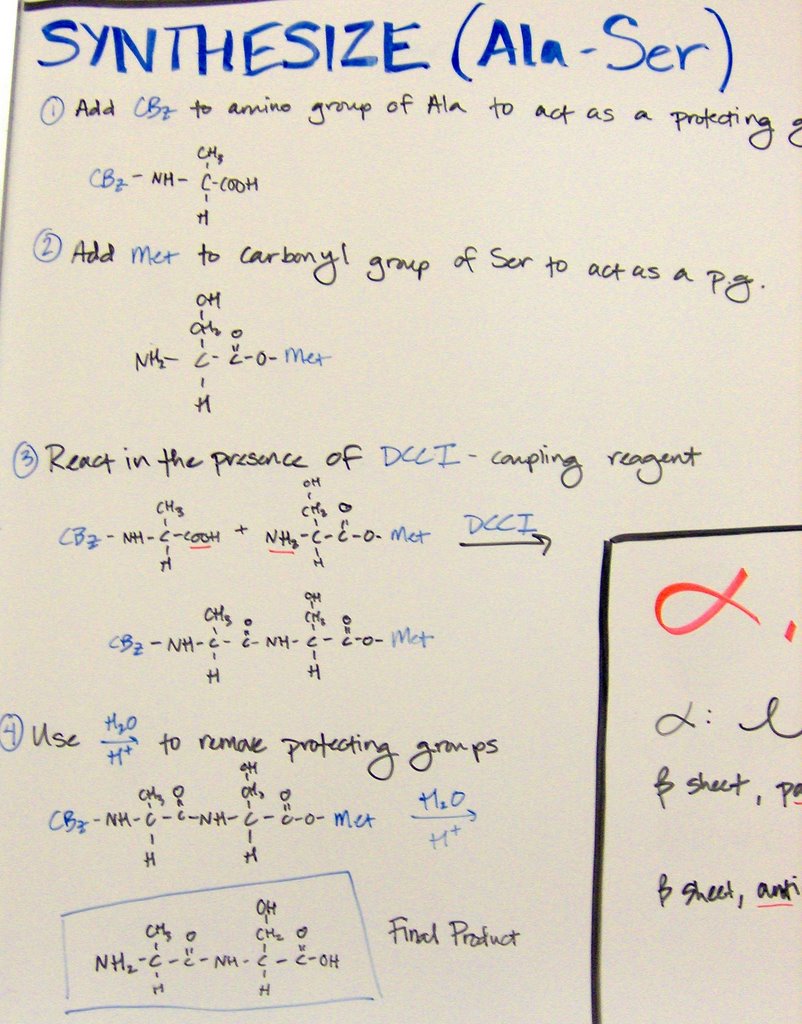 SYNTHESIZE (Ala-Ser)
① Add CBz to amino group of Ala to act as a protecting
CH3
CBz - NH - C-COOH
H
② Add Met to carbonyl group of Ser to act as a p.g.
OH
CH2 O
NH2- C - C -O- Met
H
③ React in the presence of DCCI - coupling reagent
OH
CH3 CH2 O
CBz - NH-C-COOH + NH2-C-C-O- Met DCCI
H H
OH
CH3 O CH2 O
CBz - NH-C-C-NH-C-C-O- Met
H H
④ Use H2O H+ to remove protecting groups
OH
CH3 O CH2 O
CBz-NH-C-C-NH-C-C-O- Met H2O
H H H+
OH
CH3 O CH2 O
NH2-C-C-NH-C-C-OH Final Product
H H
α,
α:
β sheet,
β sheet, anti